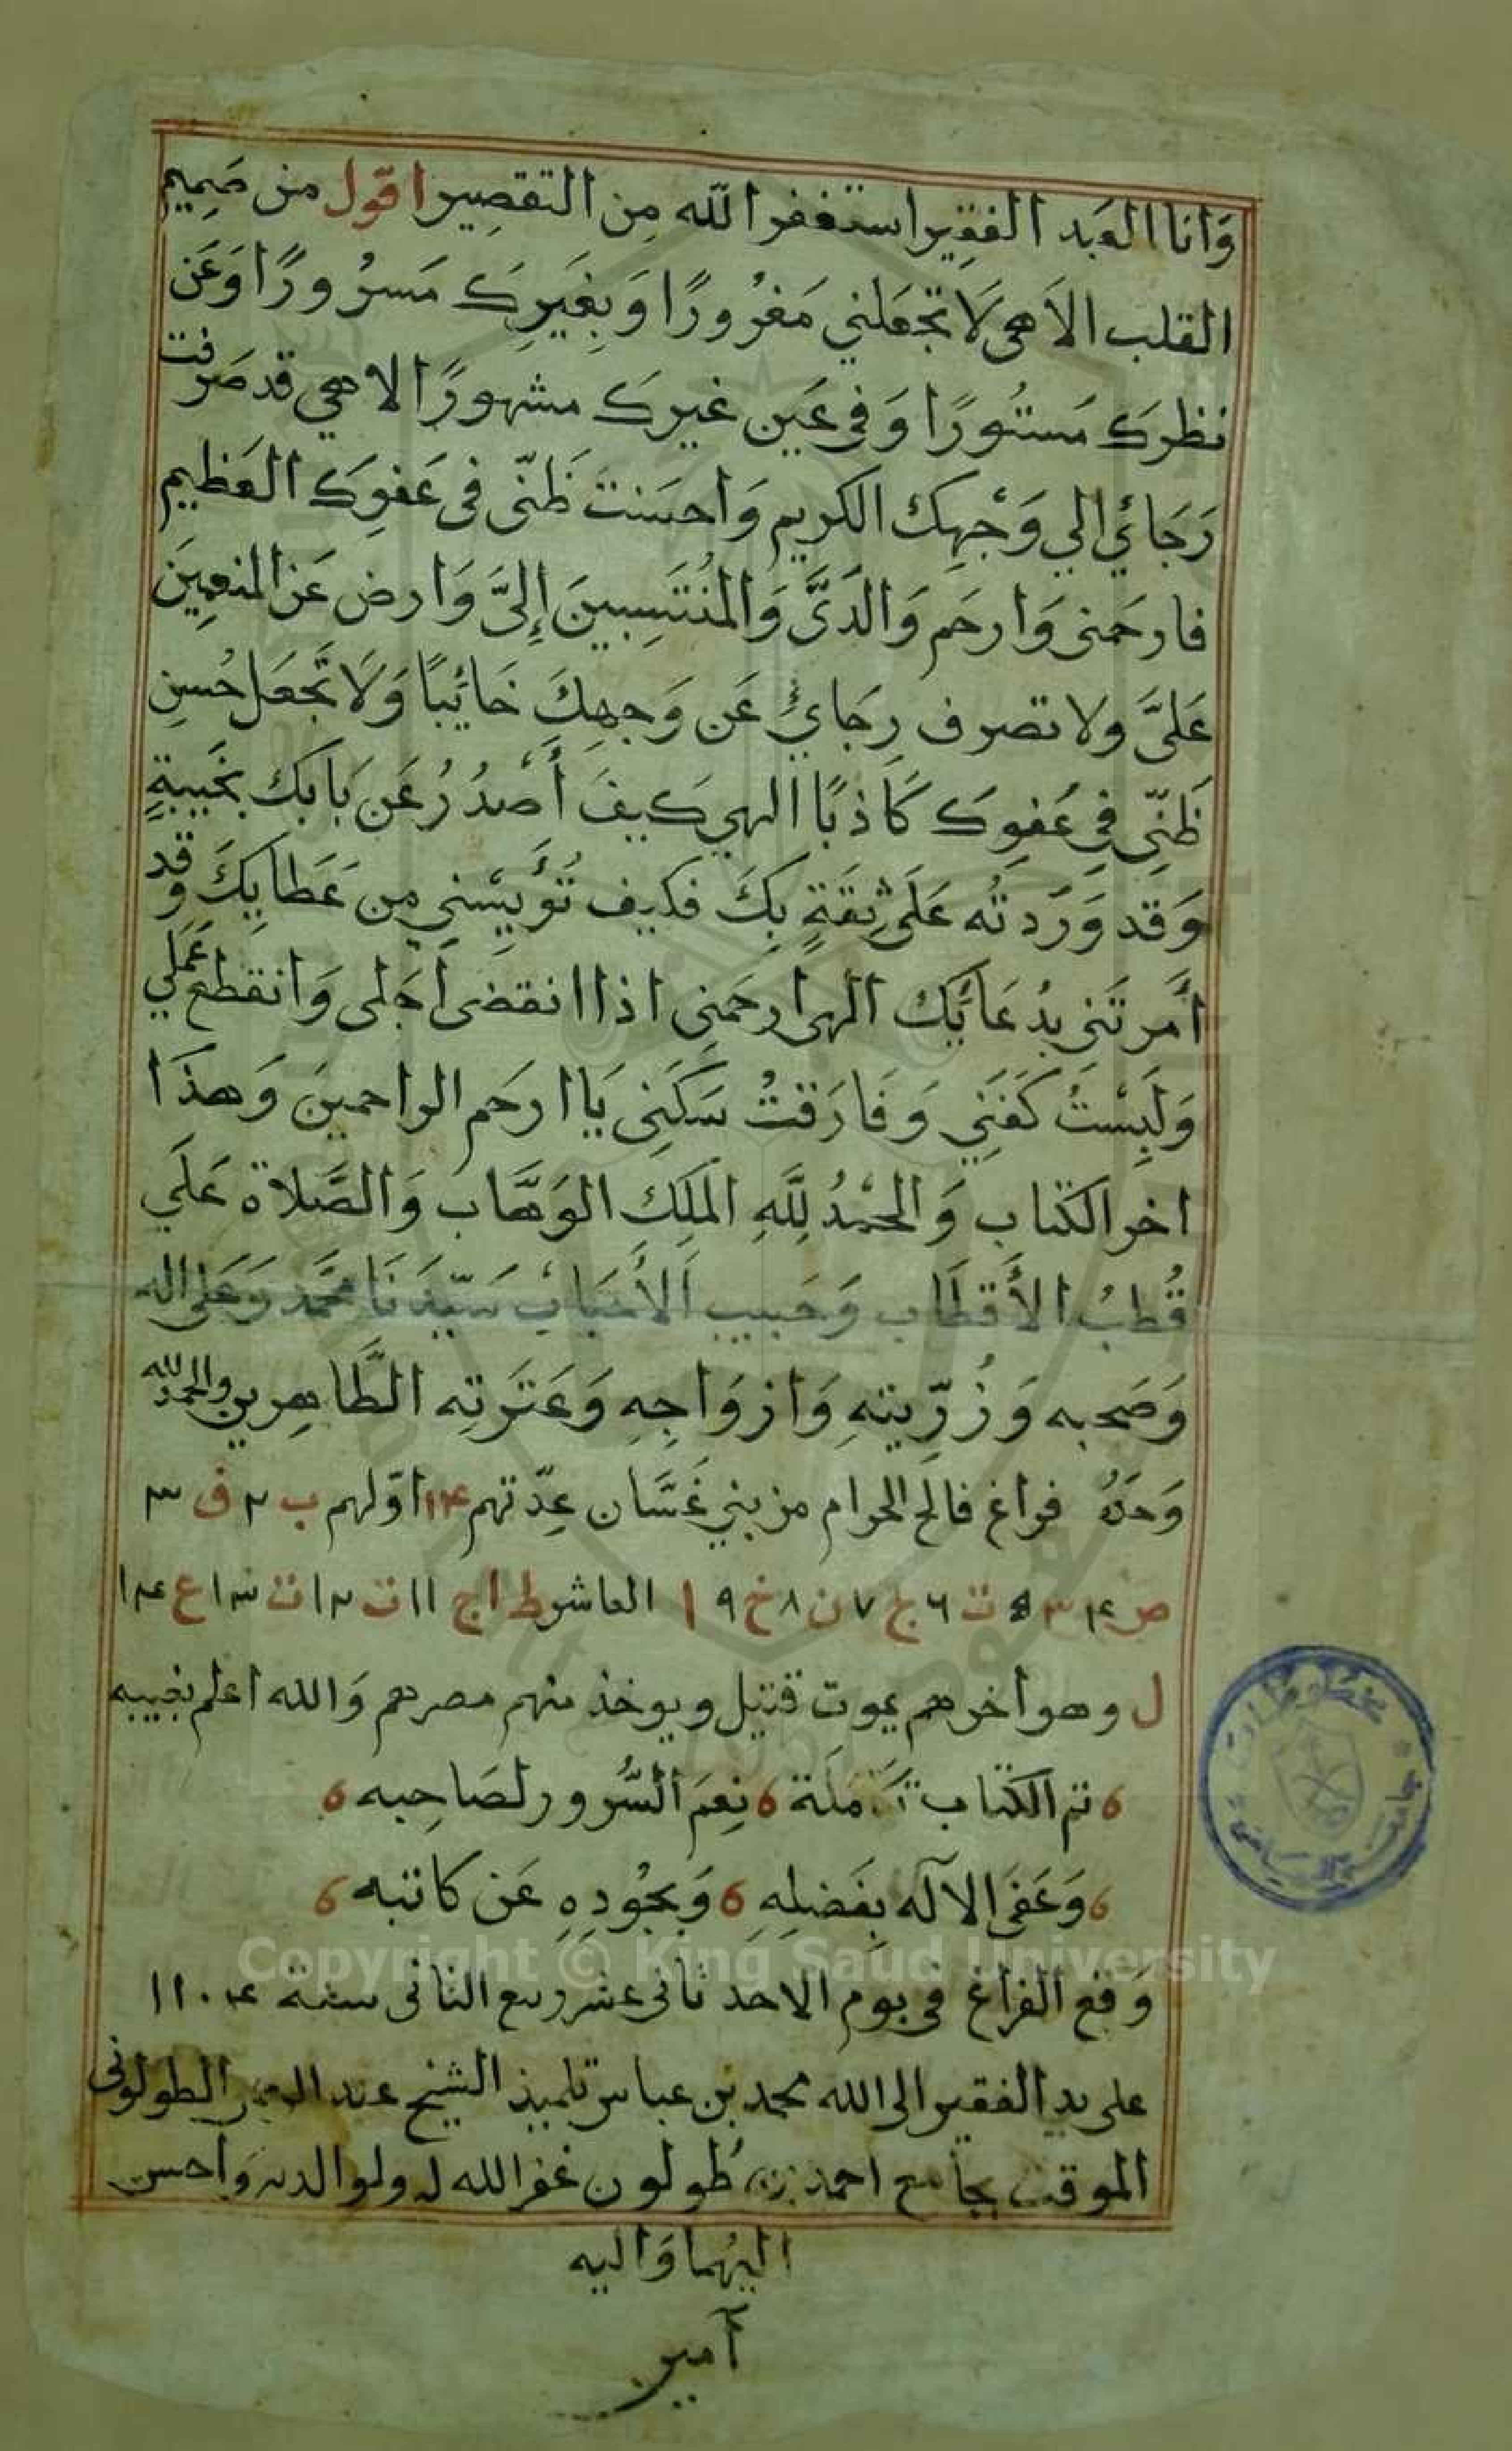 وَانا العَبد الفقِير استغفر الله مِن التقصِير اقول من صَمِيم
القلب الاَهى لَا تجعَلني مَغرُورًا وَبِغَيرِكَ مَسرُورًا وَعَن
نظرَك مَستُورًا وَفى عَين غيرك مشهورًا الاهي قد صَرفت
رَجَائي الي وَجْهِك الكريم وَاحسَنت ظَنّى فى عَفوِكَ العَظيم
فارحَمنى وَارحَم وَالدَىَّ وَالمُنتَسِبينَ إِلىَّ وَارض عَن المنعِمِينَ
عَلىَّ ولا تصرف رِجَائي عَن وَجهِكَ خَائِبًا وَلَا تَجعَل حُسن
ظَنِّي فِي عَفوِكَ كَاذبًا الهي كَيفَ أَصْدُرُ عَن بَابَك بخَيبةٍ
وَقد وَرَدتُه عَلَى ثِقَةٍ بِكَ فكيف تُؤَيِّسْني مِن عَطايِكَ وَقد
أمرتَني بدُعَائك الهى ارحَمني اذا انقضى اَجَلى وَانقطع عَمَلي
وَلَبِسْتُ كَفَنَي وَفَارَقتُ سَكَنِى يَا ارحَم الراحمينَ وَهذَا
اخر الكتاب وَالحَمْدُ لِلَّهِ المَلِكِ الوَهَّاب وَالصَّلاة عَلَي
قُطبُ الأَقطَاب وَحَبيب الأَحبَاب سَيّدَنَا محَّمد وَعَلى اله
وَصَحبه وَزُرِّيتهِ وَازوَاجِهِ وَعَترَتِه الطَّاهِرين والحمد لله
وَحدَهُ فراغ فالح الحرام من بني غَسَّان عِدّتهم ١٤ اوّلهم ب ٢ ق ٣
ص ٤ س ٥ ت ٦ ج ٧ ن ٨ خ ٩ ا العاشر ط ا ج ١١ ت ١٢ ت ١٣ ع ١٤
ل وهو أخرهم يموت قتيل ويوخذ منهم مصرهم وَالله اعلم بغيبه
تم الكتاب تكملة نِعمَ السُّرور لصَاحِبه
وَعَفىَ الالآه بِفَضلِهِ وَبجُودِهِ عَن كاتبه
وَقع الفراغ فى يوم الاحد ثانى عشر ربيع الثانى سنة ١١٠٤
على يد الفقير الى الله محمد بن عباس تلميذ الشيخ عبد الطولونى
الموقت بجامع احمد بن طُولون غفر الله له ولوالديه وَاحسن
اليهُما وَاليه
آمين
مخطوطات
جامعة الرياض
Copyright © King Saud University